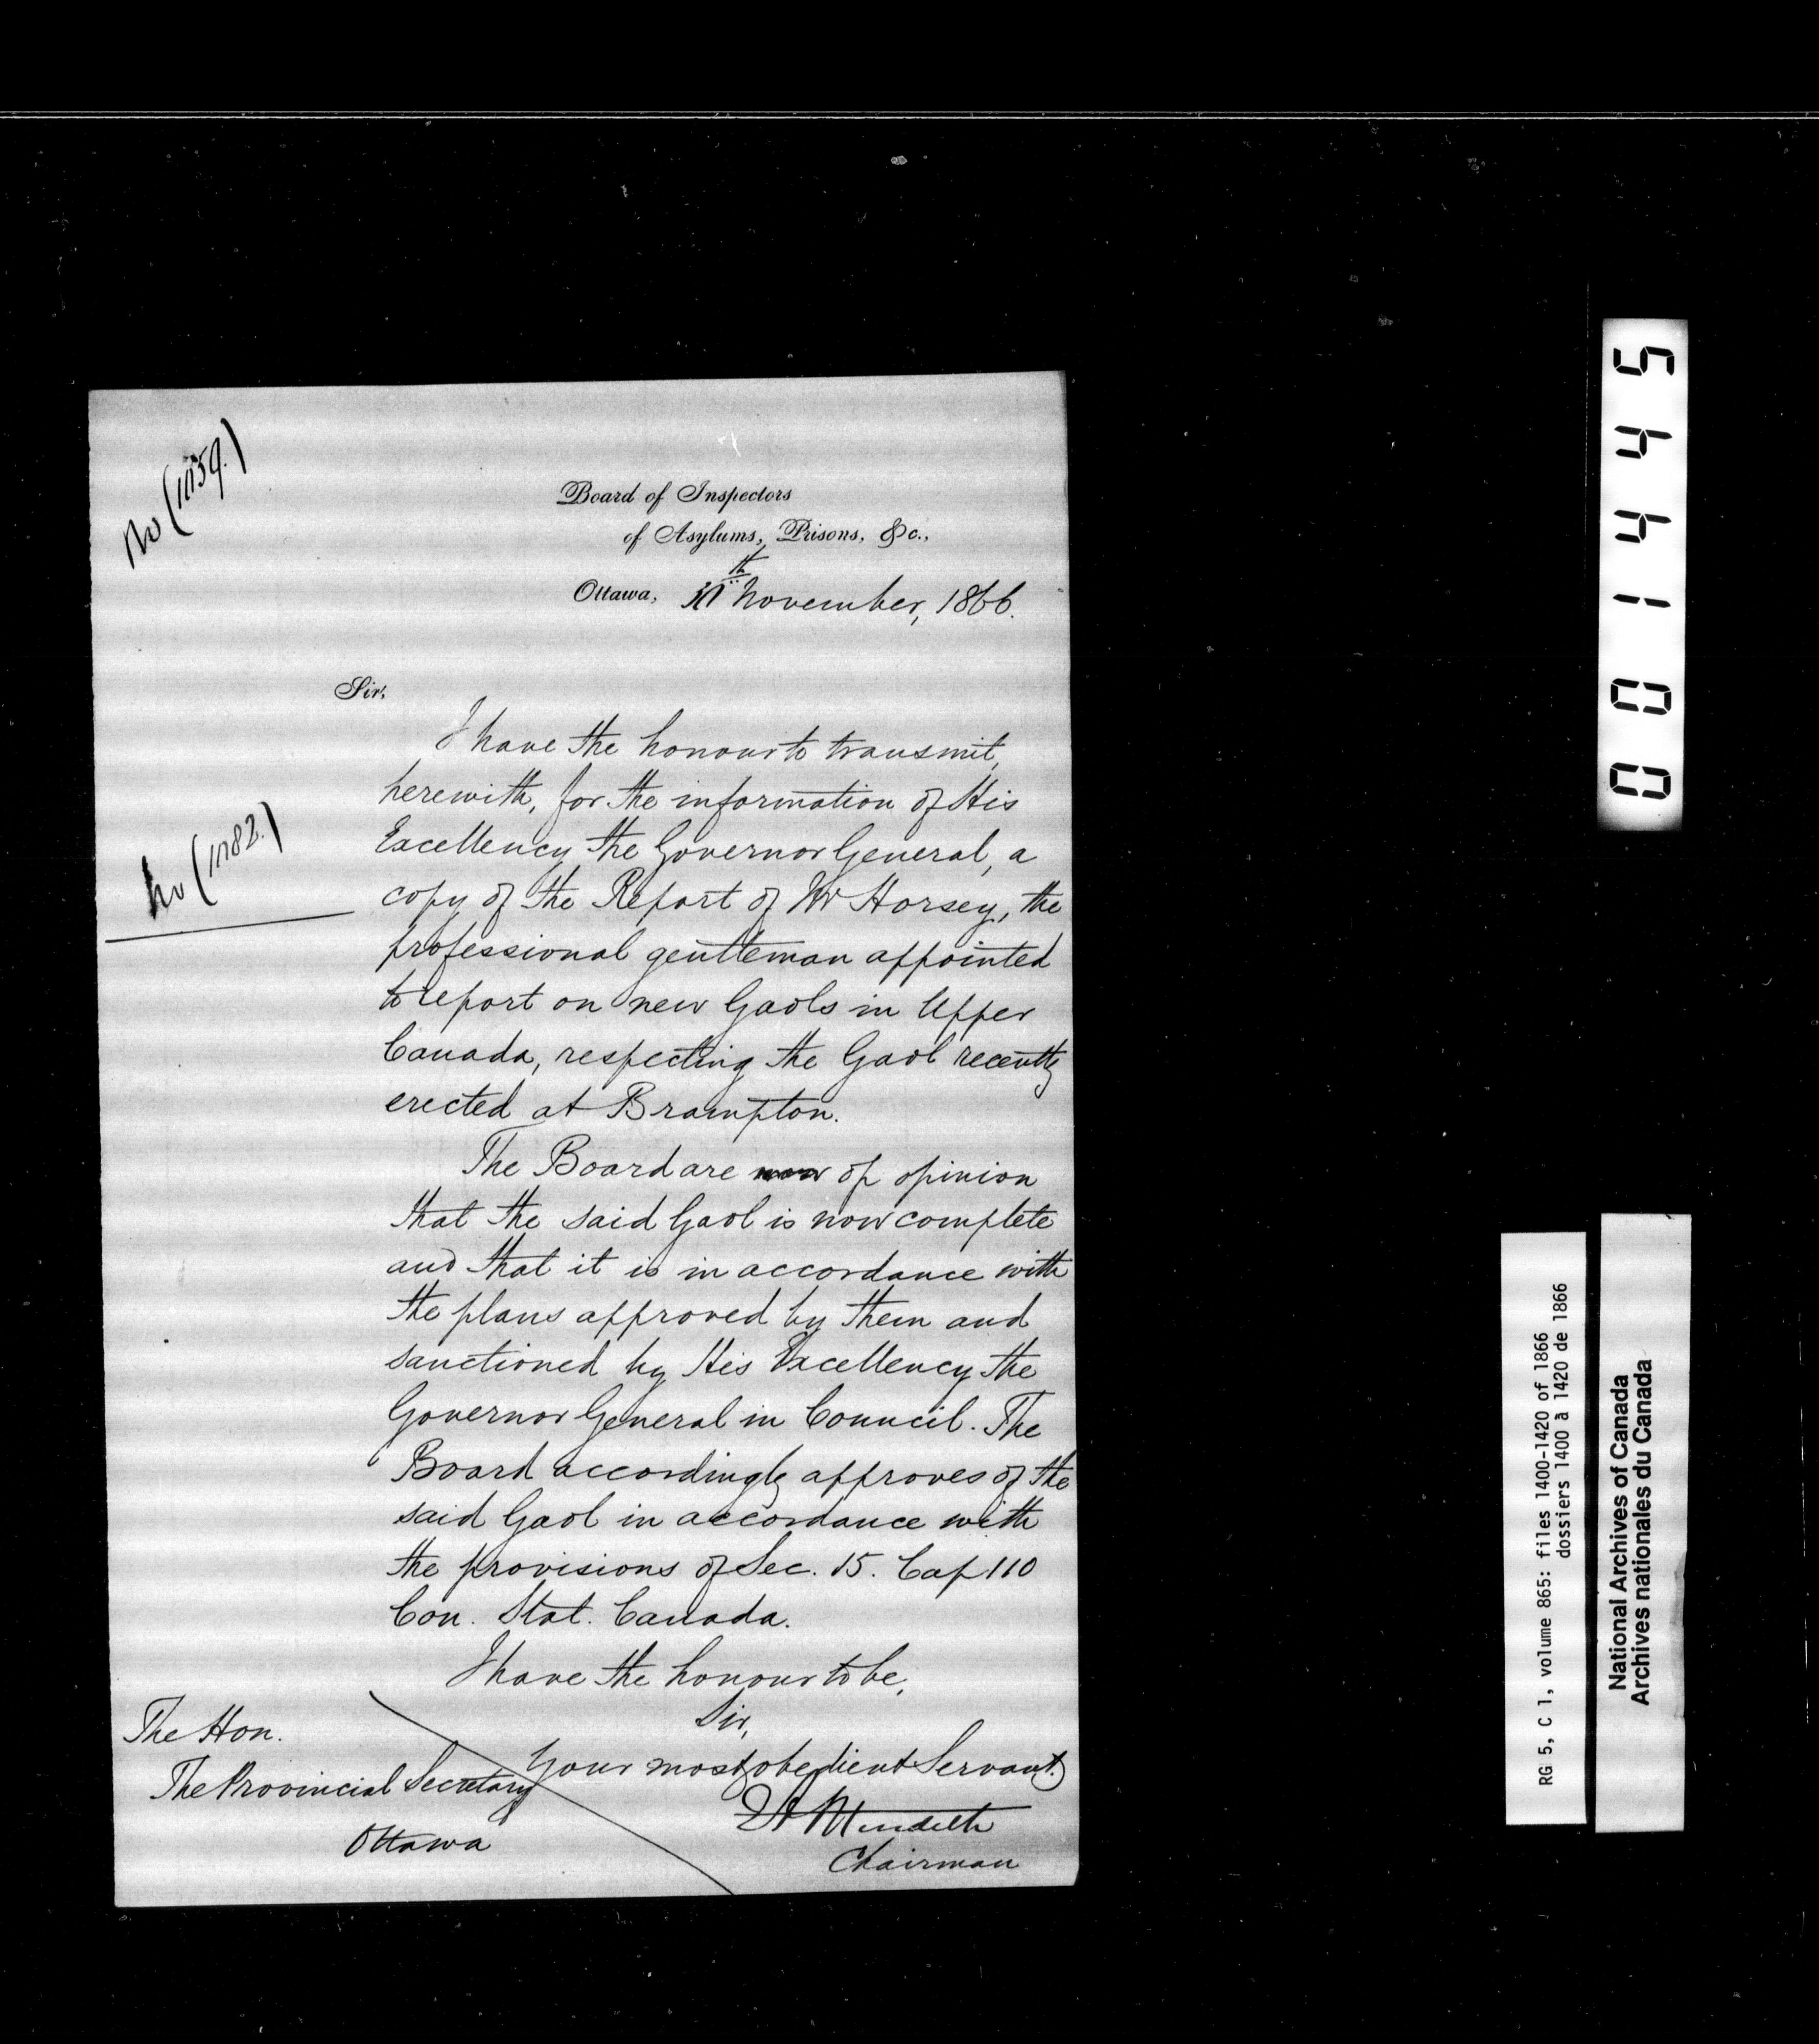 No (1159.)
Board of Inspectors
of Asylums, Prisons, &c.,
Ottawa, 30th November, 1866.
Sir,
I have the honour to transmit,
herewith, for the information of His
Excellency the Governor General, a
No (1182.)
copy of the Report of Mr Horsey, the
professional gentleman appointed
to report on new Gaols in Upper
Canada, respecting the Gaol recently
erected at Brampton.
The Board are now of opinion
that the said Gaol is now complete
and that it is in accordance with
the plans approved by them and
sanctioned by His Excellency the
Governor General in Council. The
Board accordingly approves of the
said Gaol in accordance with
the provisions of Sec. 15. Cap 110
Con. Stat. Canada.
I have the honour to be,
Sir,
Your most obedient Servant
Meredith
Chairman
The Hon.
The Provincial Secretary
Ottawa
001445
RG 5, C 1, volume 865: files 1400-1420 of 1866
dossiers 1400 à 1420 de 1866
National Archives of Canada
Archives nationales du Canada